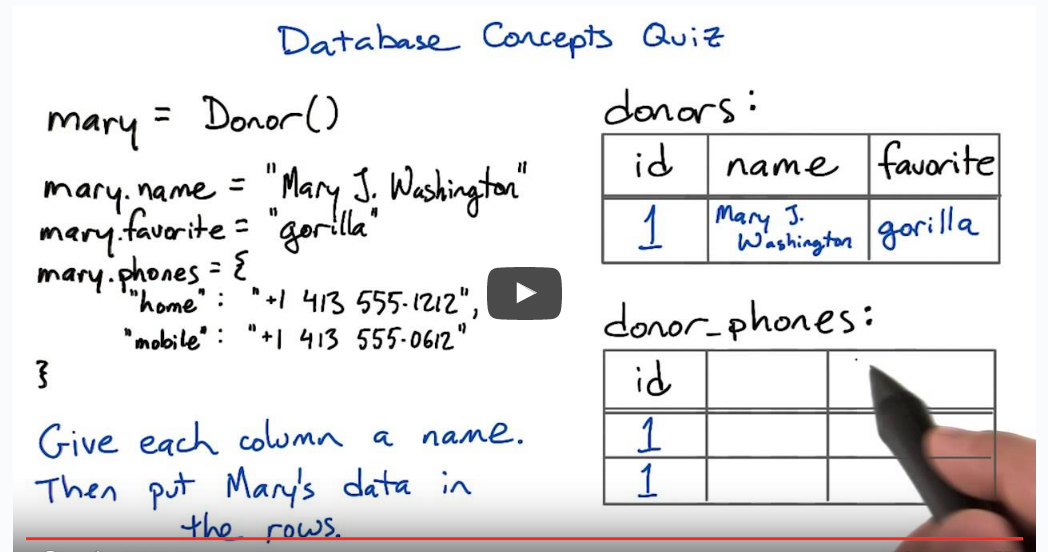 Database Concepts Quiz
mary = Donor()
mary.name = "Mary J. Washington"
mary.favorite = "gorilla"
mary.phones = {
"home" : "+1 413 555-1212",
"mobile" : "+1 413 555-0612"
}
Give each column a name.
Then put Mary's data in
the rows.
donors:
id name favorite
1 Mary J. Washington gorilla
donor_phones:
id
1
1